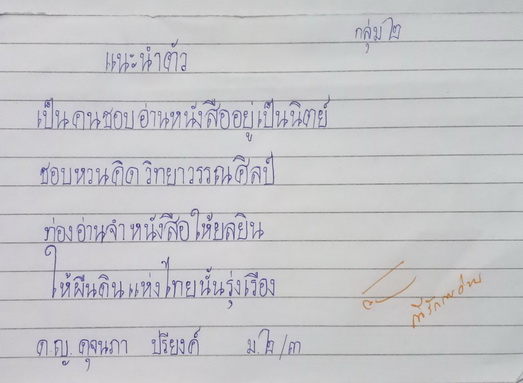 กลุ่ม ๒
แนะนำตัว
เป็นคนชอบอ่านหนังสืออยู่เป็นนิตย์
ชอบหวนคิดวิทยาวรรณศิลป์
ท่องอ่านจำหนังสือให้ยลยิน
ให้ผืนดินแห่งไทยนั้นรุ่งเรือง
ด.ญ. ดุจนภา ปรียงค์ ม.๒/๓